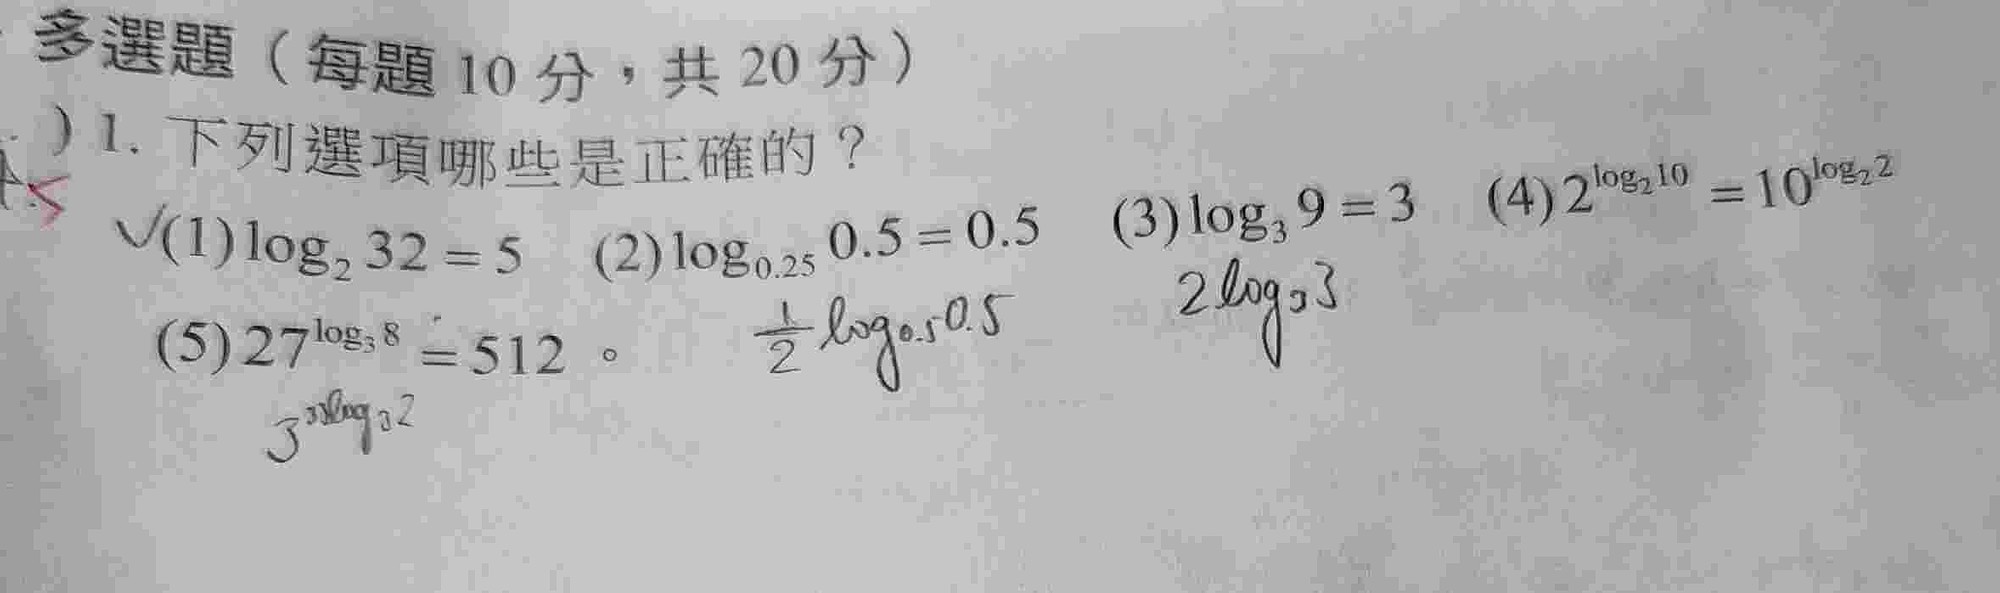 多選題（每題 10 分，共 20 分）
) 1. 下列選項哪些是正確的？
5
✓(1) log₂ 32 = 5 (2) log₀.₂₅ 0.5 = 0.5 (3) log₃ 9 = 3 (4) 2^(log₂ 10) = 10^(log₂ 2)
1/2 log₀.₅ 0.5 2 log₃ 3
(5) 27^(log₃ 8) = 512 。